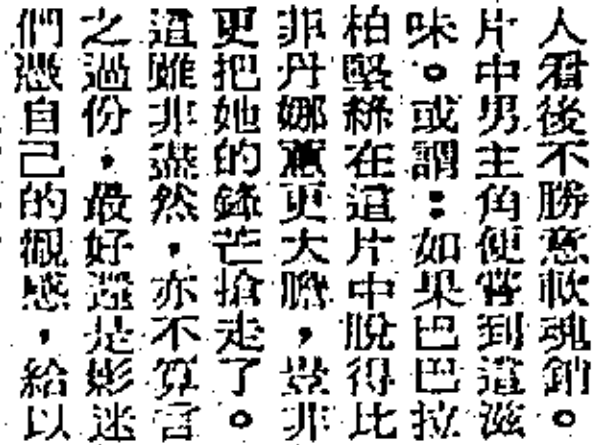 人看後不勝意軟魂銷。
片中男主角便嘗到這滋
味。或謂：如果巴巴拉
柏堅絲在這片中脫得比
菲丹娜薫更大膽，豈非
更把她的鋒芒搶走了。
這雖非盡然，亦不算言
之過份，最好還是影迷
們憑自己的觀感，給以